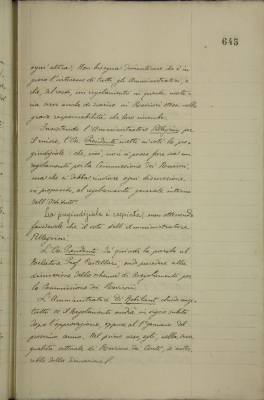 645
ogni altra. Non bisogna dimenticare che è in
gioco l'interesse di tutti gli Amministratori, e
che, del resto, un regolamento in questa mate=
ria serve anche di scarico ai Revisori stessi nella
grave responsabilità che loro incombe.
Insistendo l'Amministratore Pellegrini per
il rinvio, l'On. Presidente mette ai voti la pre=
giudiziale: che, cioè, non si possa fare ora un
regolamento per la Commissione dei Revisori,
ma che si debba rinviare ogni discussione
in proposito, al regolamento generale interno
dell'Istituto.
La pregiudiziale è respinta, non ottenendo
favorevole che il voto dell'Amministratore
Pellegrini.
L'On. Presidente dà quindi la parola al
Relatore Prof. Castellari, onde iniziare la
discussione dello schema di Regolamento per
la Commissione dei Revisori.
L'Amministratore Di Robilant chiede anzi=
tutto se il Regolamento andrà in vigore subito
dopo l'approvazione, oppure al 1° gennaio del
prossimo anno. Nel primo caso, egli, nella sua
qualità attuale di Revisore dei Conti, si